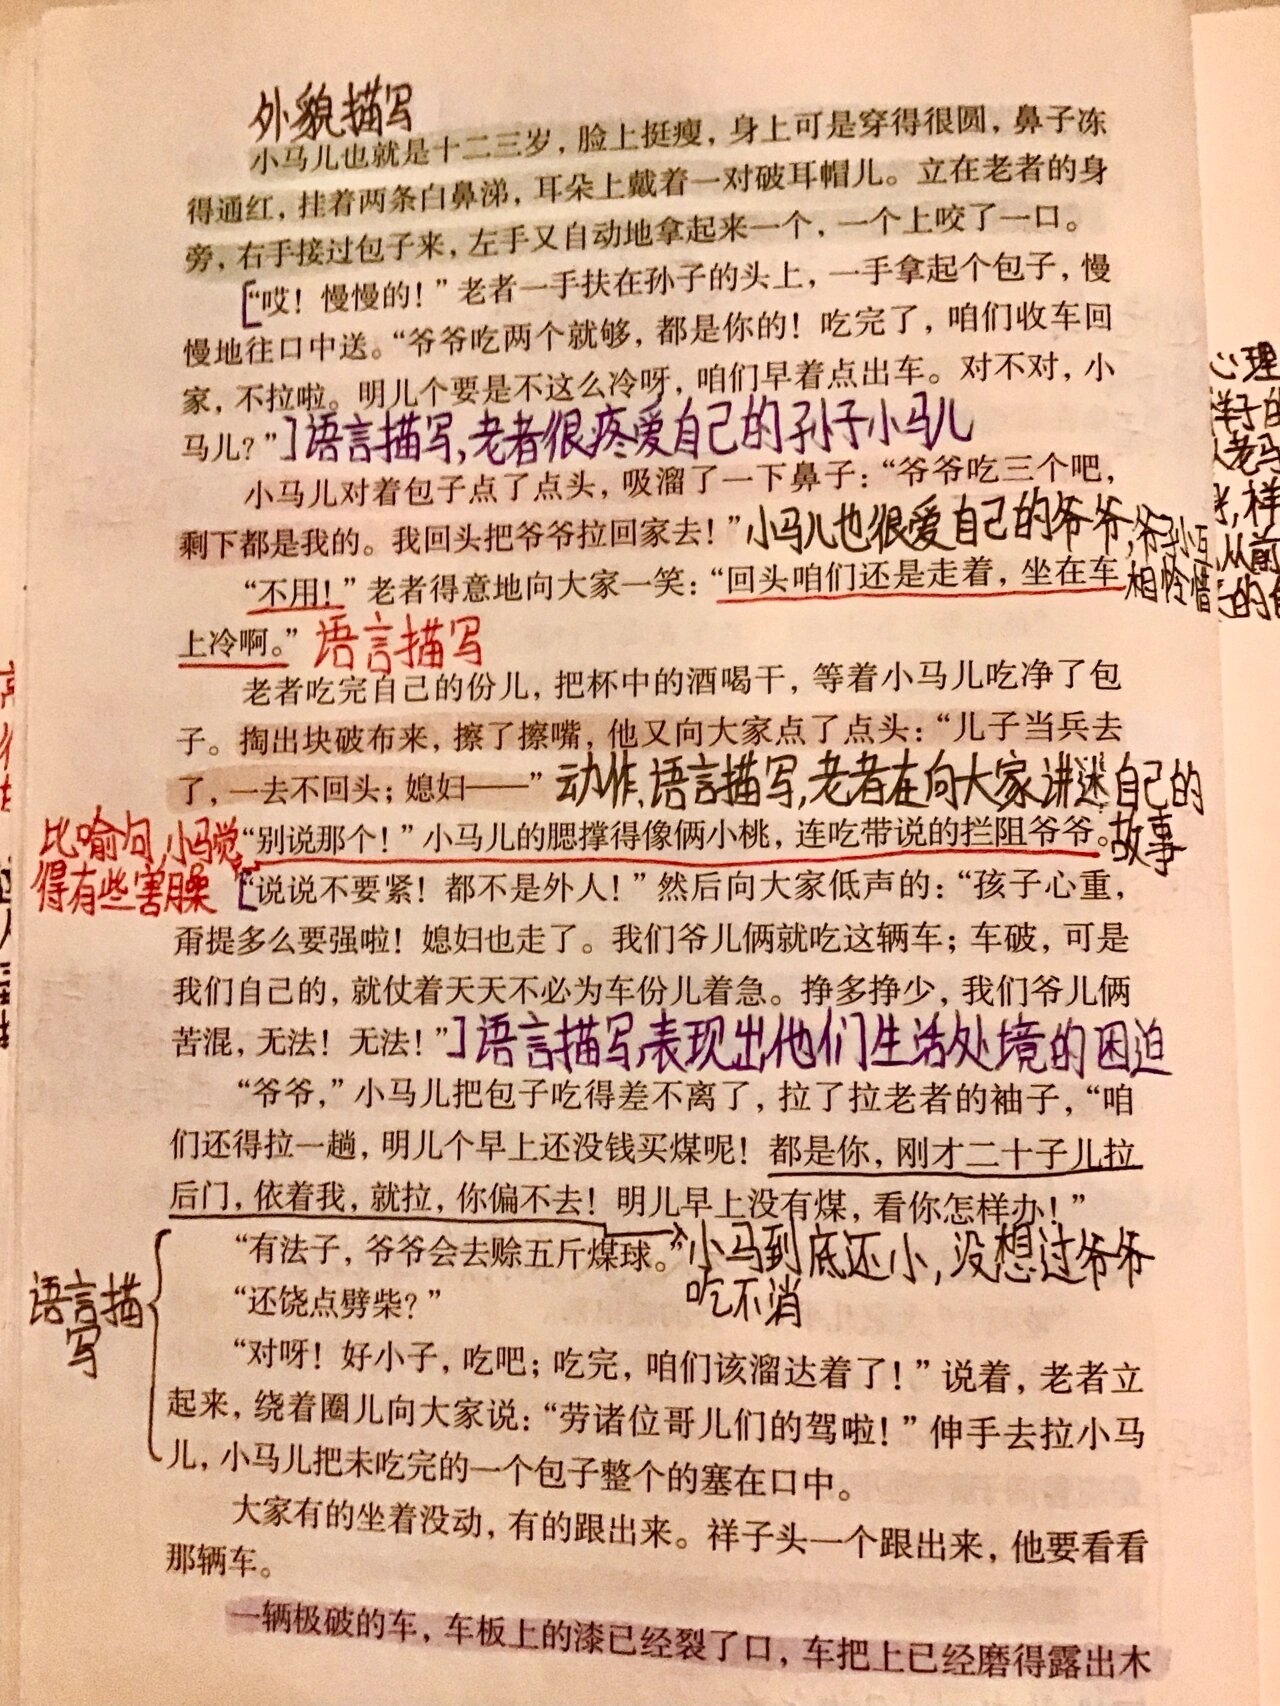 外貌描写
小马儿也就是十二三岁，脸上挺瘦，身上可是穿得很圆，鼻子冻
得通红，挂着两条白鼻涕，耳朵上戴着一对破耳帽儿。立在老者的身
旁，右手接过包子来，左手又自动地拿起来一个，一个上咬了一口。
[“哎！慢慢的！”老者一手扶在孙子的头上，一手拿起个包子，慢
慢地往口中送。“爷爷吃两个就够，都是你的！吃完了，咱们收车回
家，不拉啦。明儿个要是不这么冷呀，咱们早着点出车。对不对，小
马儿？”]语言描写，老者很疼爱自己的孙子小马儿
小马儿对着包子点了点头，吸溜了一下鼻子：“爷爷吃三个吧，
剩下都是我的。我回头把爷爷拉回家去！”小马儿也很爱自己的爷爷，爷孙互
相怜惜
“不用！”老者得意地向大家一笑：“回头咱们还是走着，坐在车
上冷啊。”语言描写
老者吃完自己的份儿，把杯中的酒喝干，等着小马儿吃净了包
子。掏出块破布来，擦了擦嘴，他又向大家点了点头：“儿子当兵去
了，一去不回头；媳妇——”动作、语言描写，老者在向大家讲述自己的
故事
比喻句，小马觉
得有些害臊
“别说那个！”小马儿的腮撑得像俩小桃，连吃带说的拦阻爷爷。
[“说说不要紧！都不是外人！”然后向大家低声的：“孩子心重，
甭提多么要强啦！媳妇也走了。我们爷儿俩就吃这辆车；车破，可是
我们自己的，就仗着天天不必为车份儿着急。挣多挣少，我们爷儿俩
苦混，无法！无法！”]语言描写，表现出他们生活处境的困迫
“爷爷，”小马儿把包子吃得差不离了，拉了拉老者的袖子，“咱
们还得拉一趟，明儿个早上还没钱买煤呢！都是你，刚才二十子儿拉
后门，依着我，就拉，你偏不去！明儿早上没有煤，看你怎样办！”
“有法子，爷爷会去赊五斤煤球。”小马到底还小，没想过爷爷
吃不消
“还饶点劈柴？”
语言描
写
“对呀！好小子，吃吧；吃完，咱们该溜达着了！”说着，老者立
起来，绕着圈儿向大家说：“劳诸位哥儿们的驾啦！”伸手去拉小马
儿，小马儿把未吃完的一个包子整个的塞在口中。
大家有的坐着没动，有的跟出来。祥子头一个跟出来，他要看看
那辆车。
一辆极破的车，车板上的漆已经裂了口，车把上已经磨得露出木
心理
祥子的
老马
样
从前
的自